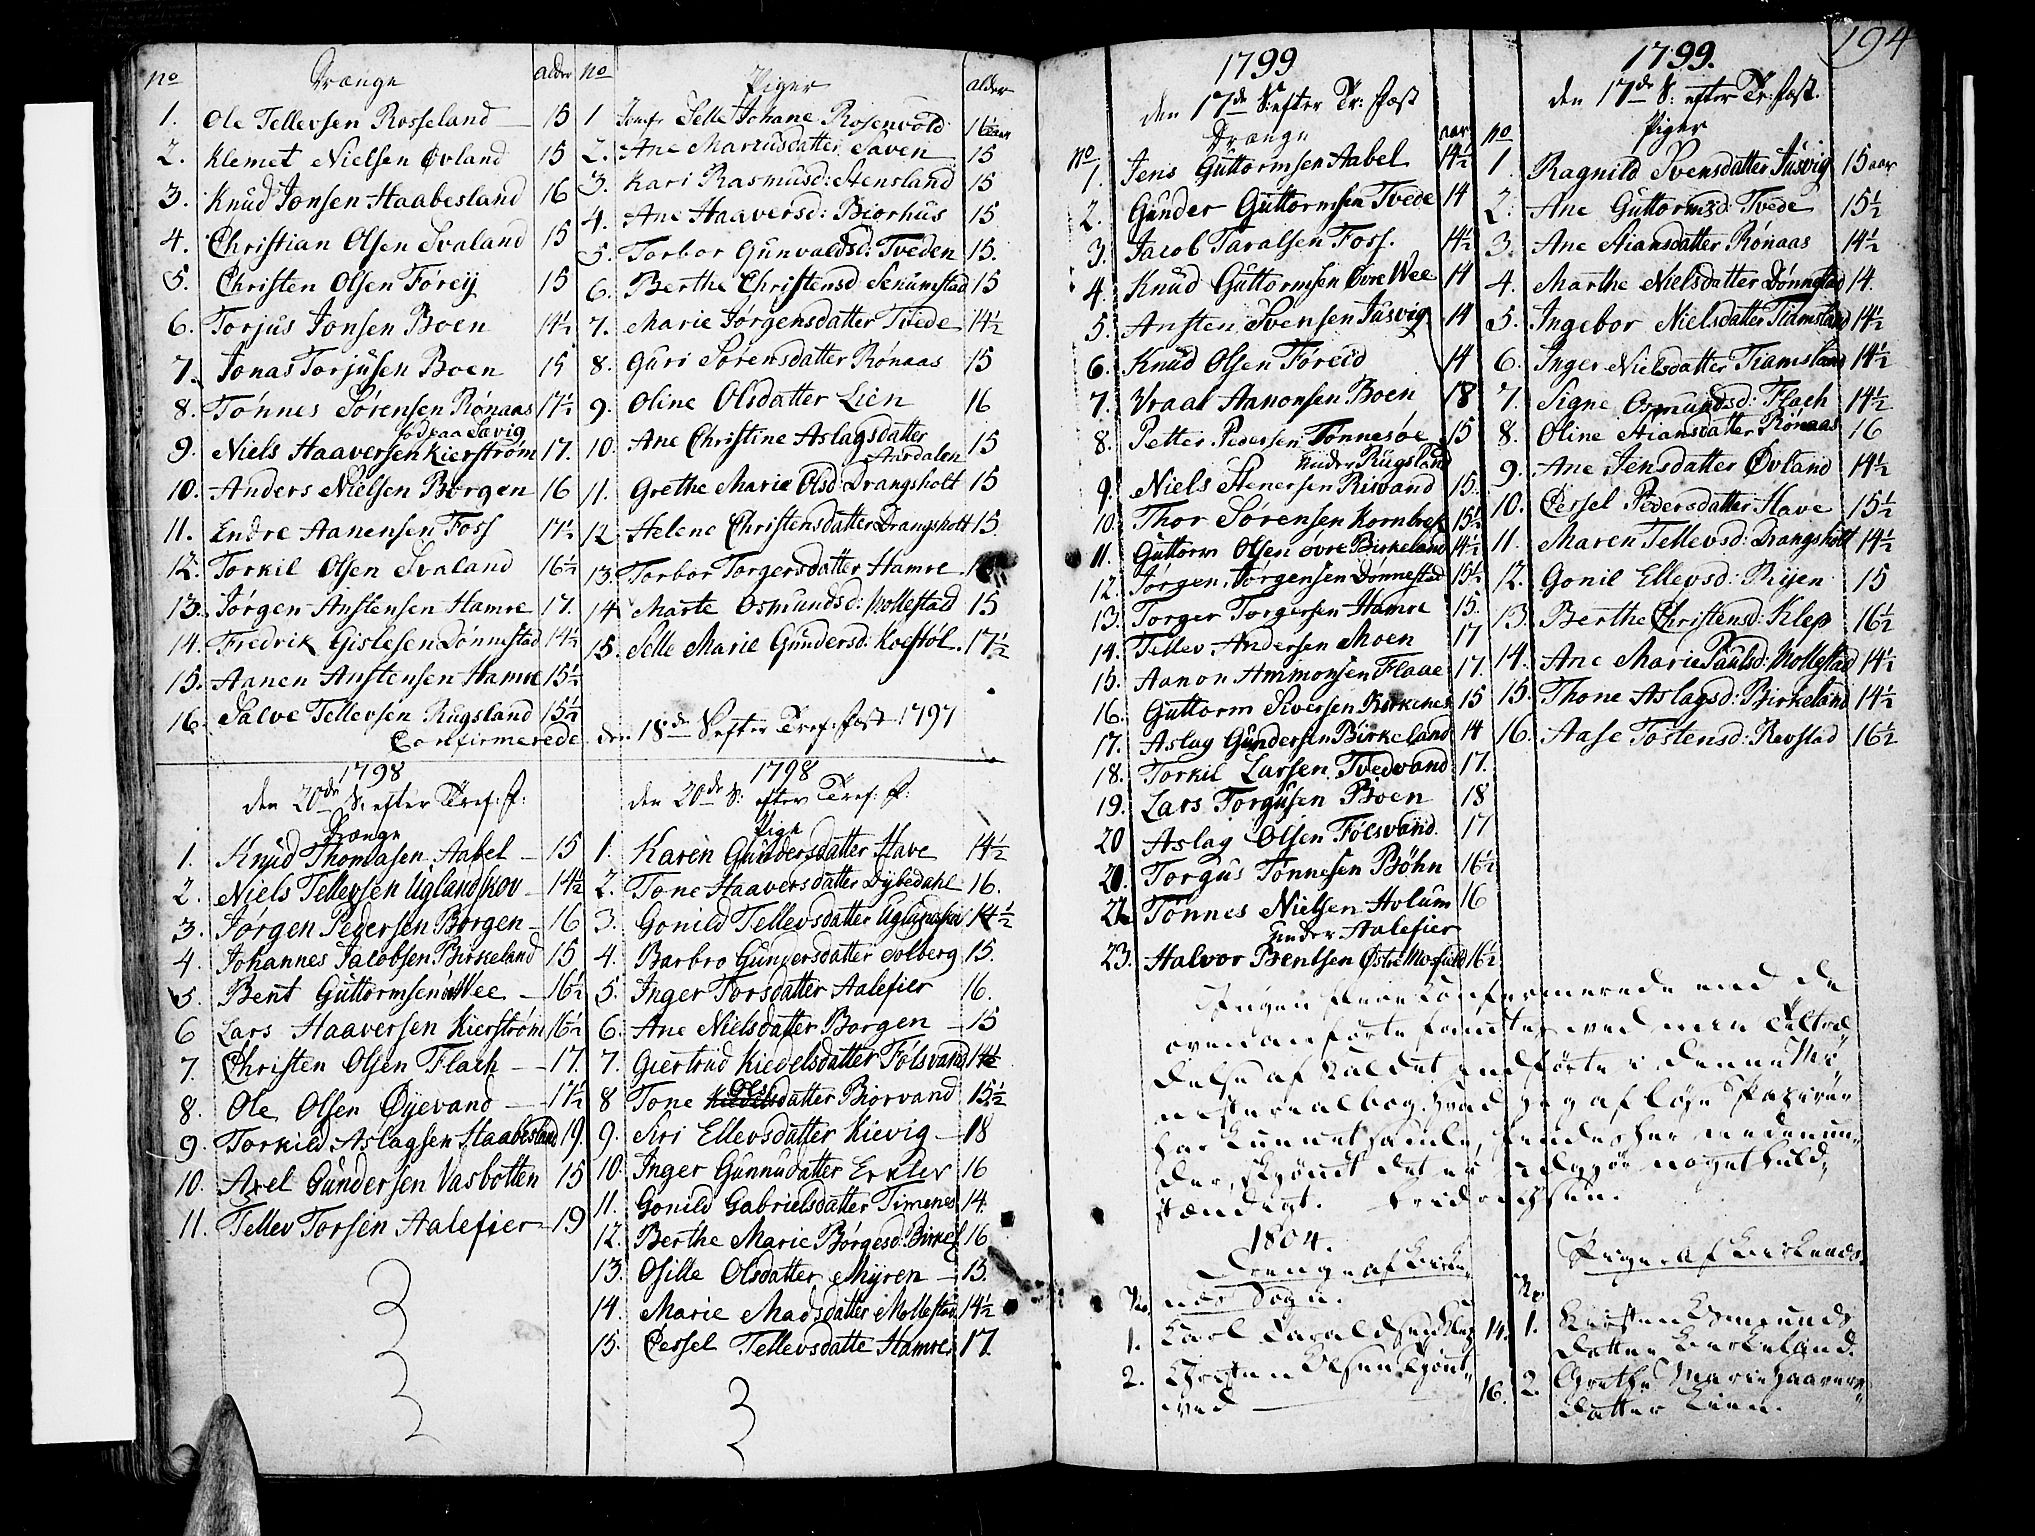 no Drænge alder
1. Ole Tellevsen Rosseland 15
2. Klemet Nielsen Øvland 15
3. Knud Jonsen Haabesland 16
4. Christian Olsen Svaland 15
5. Christen Olsen Førey 15
6. Torjus Jonsen Boen 14½
7. Jonas Torjusen Boen 15
8. Tønnes Sørensen Rønaas 17½
fød paa Savig
9. Niels Haaversen Kierstrøm 17.
10. Anders Nielsen Borgen 16
11. Endre Aanensen Foss 17½
12. Torkil Olsen Svaland 16½
13. Jørgen Anstensen Hamre 17.
14. Fredrik Gislesen Dønnestad 14½
15. Aanen Anstensen Hamre 15½
16. Salve Tellevsen Rugsland 15½
no Piger alder
1 Jomfr Selle Johane Rosenvold 16½ aar
2. Ane Mariusdatter Saven 15
3. Kari Rasmusd: Stensland 15
4. Ane Haaversd: Biorhus 15
5. Torbor Gunvaldsd: Tveden 15.
6. Berthe Christensd Senumstad 15
7. Marie Jørgensdatter Tvede 14½
8. Guri Sørensdatter Rønaas 15
9. Oline Olsdatter Lien 16
10. Ane Christine Aslagsdatter 15
Aasdalen
11. Grethe Marie Olsd: Drangsholt 15
12 Helene Christensdatter Drangsholt 15
13. Torbor Torgersdatter Hamre
14 Marte Osmundsd: Mollestad 15
15. Selle Marie Gundersd: Koestøl. 17½
Confirmerede den 18de S. efter Tref: fest 1797
1798
den 20de S: efter Tref: f:
Drænge
1. Knud Thomasen Aabel 15
2. Niels Tellevsen Uglandskov 14½
3. Jørgen Pedersen Borgen 16
4. Johannes Jacobsen Birkeland 15
5. Bent Guttormsen Wee 16½
6 Lars Haaversen Kierstrøm 16½
7. Christen Olsen Flach 17.
8. Ole Olsen Øyevand 17½
9. Torkild Aslagsen Haabesland 19.
10. Axel Gundersen Vasbotten 15
11. Tellev Torsen Aalefier 19
1798
den 20de S: efter Tref: f:
Pige
1. Karen Gundersdatter Have 14½
2. Tone Haaversdatter Dybedahl 16.
3. Gonild Tellevsdatter Uglandskov 14½
4. Barbro Gundersdatter Solberg 15.
5. Inger Torsdatter Aalefier 16.
6. Ane Nielsdatter Borgen 15
7. Giertrud Kiedelsdatter Fólsvand 14½
8 Tone Olsdatter Biorvand 15½
9. Siri Ellevsdatter Kievig 18
10. Inger Gunnudatter Erklev 16
11. Gonild Gabrielsdatter Timenes 14.
12. Berthe Marie Børgesd: Birkel 16
13. Osille Olsdatter Myren 15.
14. Marie Madsdatter Mollestad 14½
15. Cessel Tellevsdatte Hamre 17.
1799
den 17de S: efter Tr: fæst
Drænge aar
No
1. Jens Guttormsen Aabel 14½
2. Gunder Guttormsen Tvede 14
3. Jacob Taralsen Foss. 14½
4. Knud Guttormsen Øvre Wee 14
5. Ansten Svensen Jusvig 14
6. Knud Olsen Føreid 14
7. Vraal Aanonsen Boen 18
8. Petter Pedersen Tønnesøe 15
under Rugsland
9. Niels Stenersen Risvand 15.
10. Thor Sørensen Kornbref 15½
11. Guttorm Olsen øvre Birkeland 14½
12. Jørgen Jørgensen Dønnestad 15½
13. Torger Torgersen Hamre 15.
14. Tellev Andersen Moen 17
15. Aanon Ammonsen Flaae 17.
16. Guttorm Siversen Birkenes 15
17. Aslag Gundersen Birkeland 14
18. Torkil Larsen Tvedvand 17.
19. Lars Torgusen Boen 18
20 Aslag Olsen Fólsvand. 17
21. Torgus Tønnesen Bøhn 16½
22. Tønnes Nielsen Holum 16
under Aalefier
23. Halvor Bentsen Østre Mosfield 16½
194
1799.
den 17de S: efter Tr: fæst.
Piger
no
1. Ragnild Svensdatter Jusvig 15 aar
2. Ane Guttormsd: Tvede 15½
3. Ane Stiansdatter Rønaas 14½
4. Marthe Nielsdatter Dønnestad 14.
5. Ingebor Nielsdatter Tiamsland 14½
6. Inger Nielsdatter Tiamsland 14½
7. Signe Osmundsd: Flach 14½
8. Oline Stiansdatter Rønaas 16
9. Ane Jensdatter Øvland 14½
10. Cessel Pedersdatter Have 15½
11. Maren Tellevsd: Drangsholt 14½
12. Gonil Ellevsd: Riisen 15
13. Berthe Christensd: Klep 16½
14. Ane Marie Paulsd: Mollestad 14½
15. Thone Aslagsd: Birkeland 14½
16. Aase Tostensd: Revstad 16½
Ingen flere Confirmerede end de
ovenanførte fandtes ved min Tiltræ-
delse af Kaldet indførte i denne Mi-
nisterialbog. Hvad jeg af løse Papirer
har kunnet samle, findes her nedenun-
der, skjøndt det er ikke noget fuld-
stændigt. Fridrichsen.
1804.
Drenge af Birke-
næs Sogn.
No
1. Carl Taraldsen Klep 14.
2. Christen Olsen
16.
Piger af Birkenæs
No
1. Kirsten Osmunds
datter Birkeland.
2. Grethe Marie Haavers-
datter Lien.